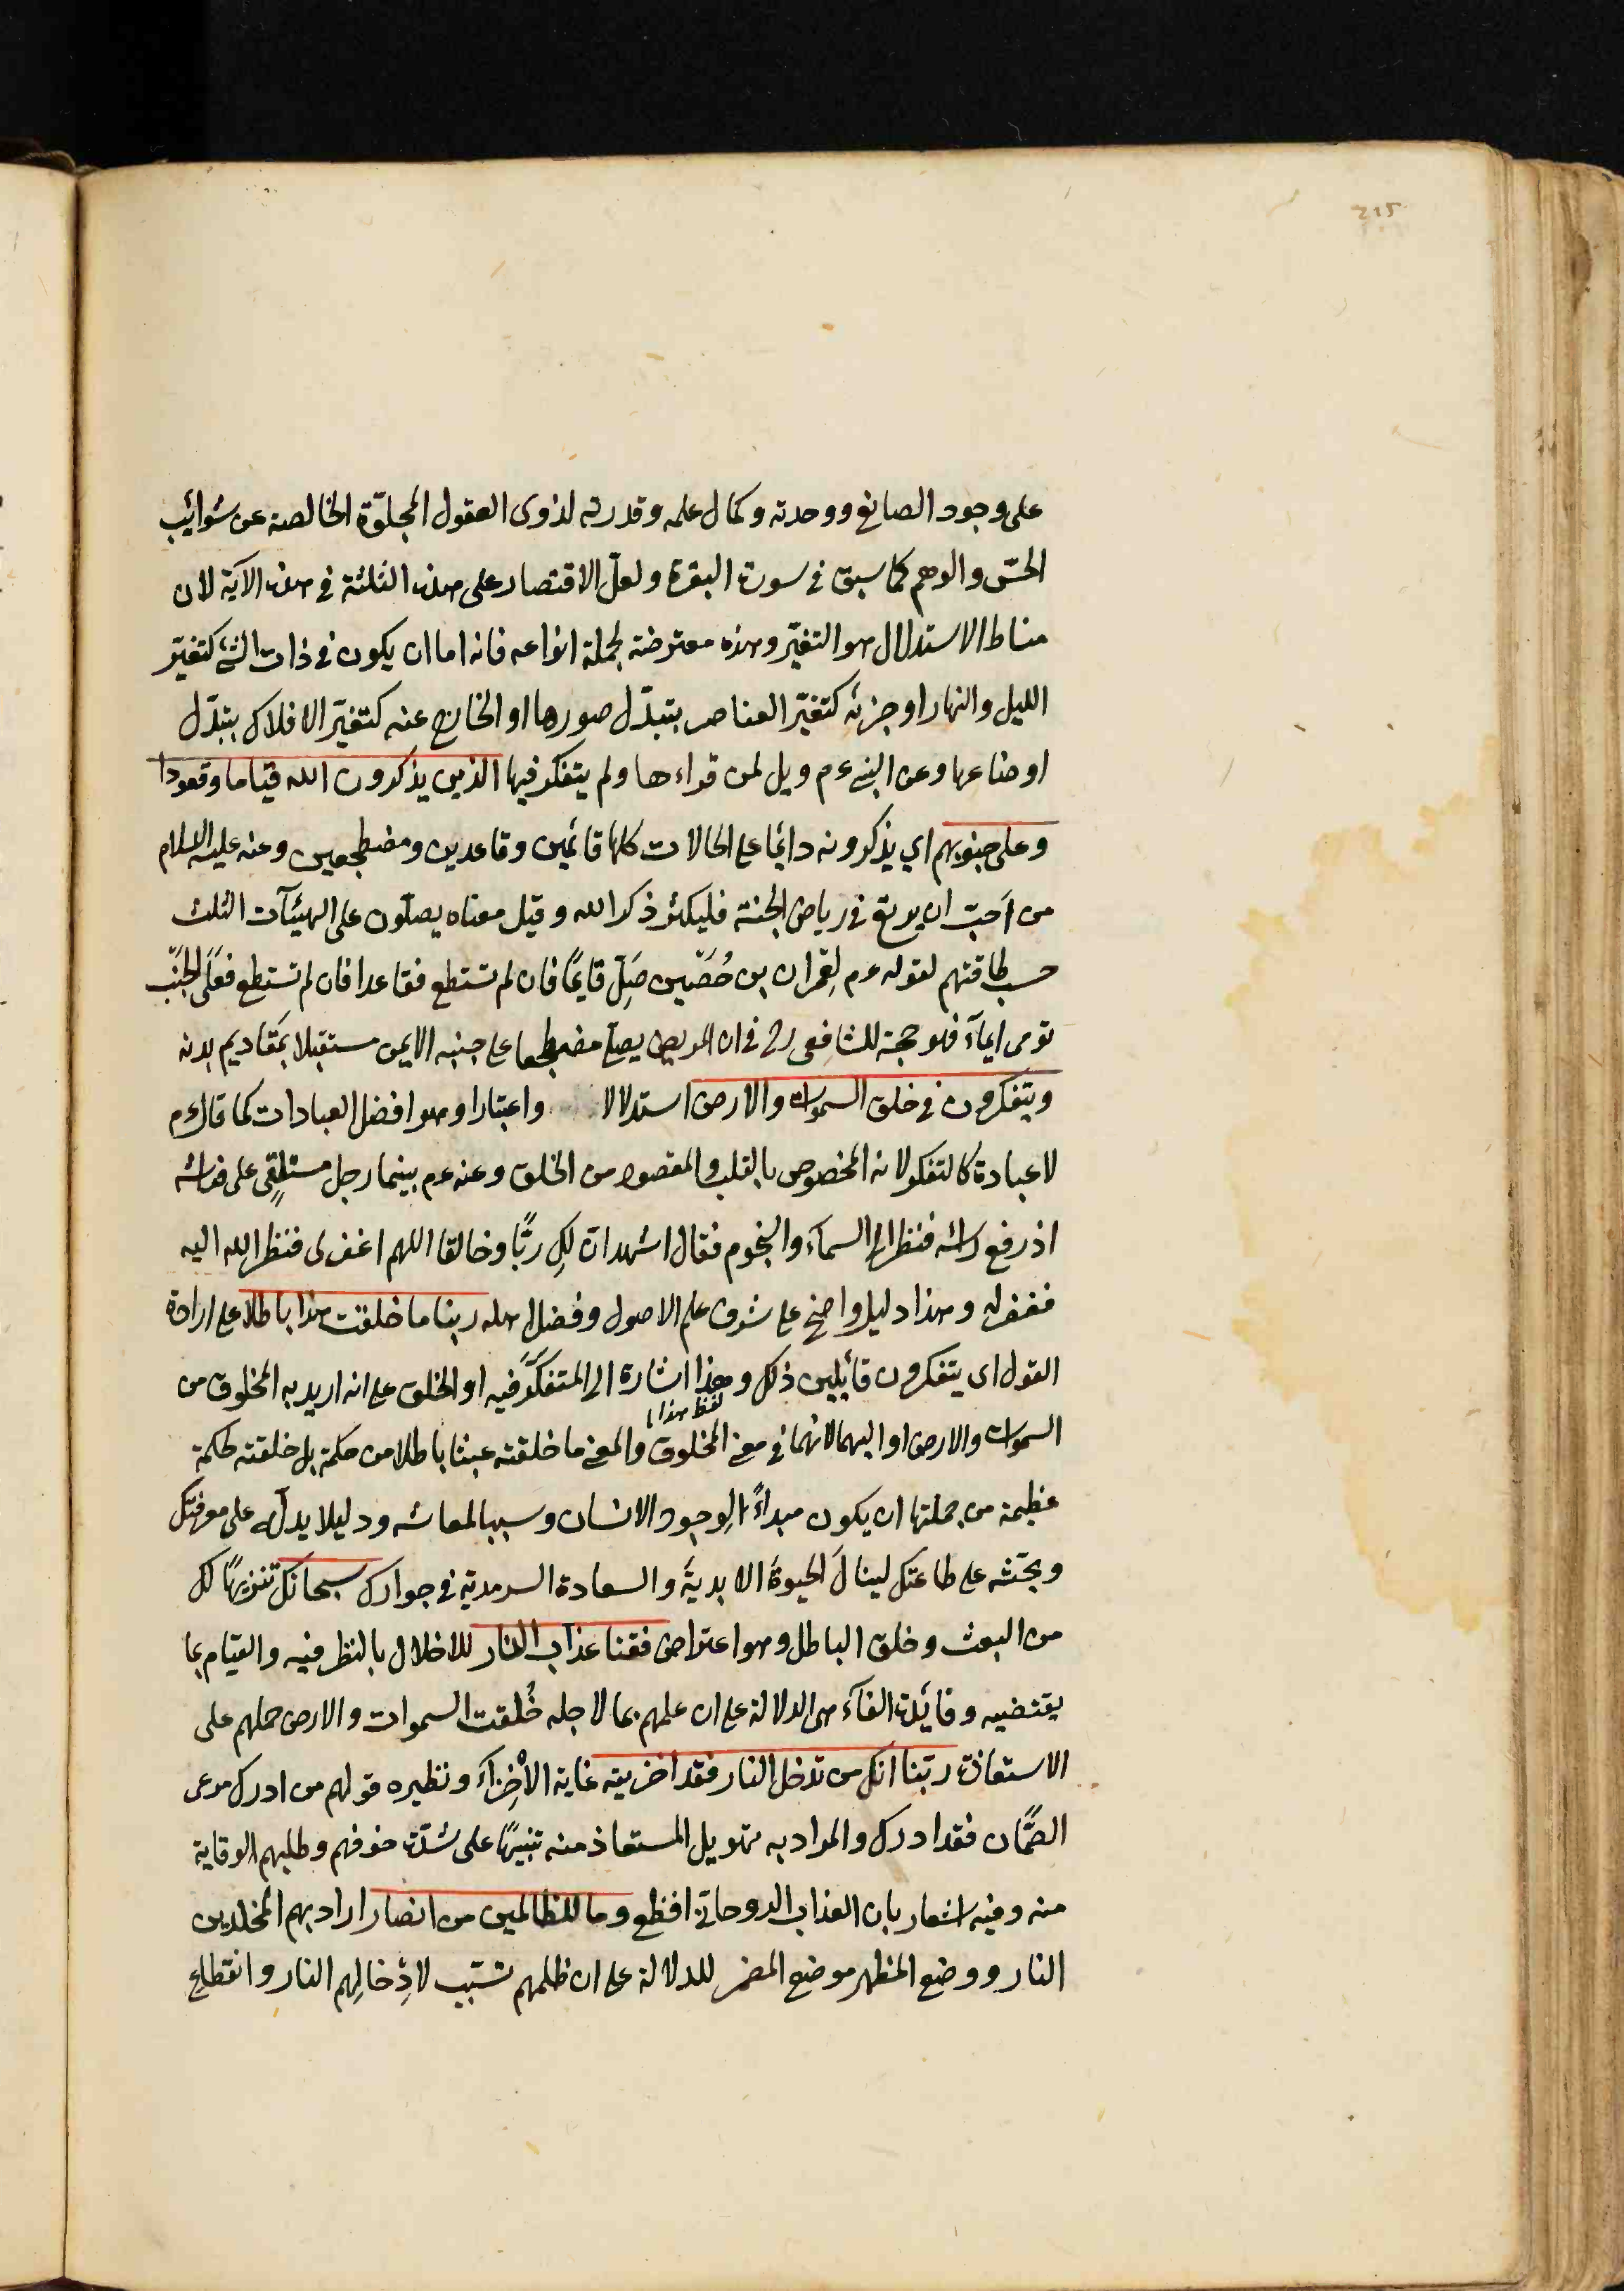 215
على وجود الصانع ووحدته وكمال علمه وقدرته لذوى العقول المجلوّة الخالصة عن شوائب
الحسّ والوهم كما سبق فى سورة البقرة ولعلّ الاقتصار على هذه الثلثة فى هذه الآية لان
مناط الاستدلال هو التغيّر وهذه معترضة لجملة انواعه فانه اما ان يكون فى ذات الشئ كتغيّر
الليل والنهار او جزئه كتغيّر العناصر بتبدّل صورها او الخارج عنه كتغيّر الافلاك بتبدّل
اوضاعها وعن النبى ءم ويل لمن قراءها ولم يتفكر فيها الذين يذكرون الله قياما وقعودا
وعلى جنوبهم اي يذكرونه دائما على الحالات كلها قائمين وقاعدين ومضطجعين وعنه عليه السلام
من احبّ ان يرتع فى رياض الجنة فليكثر ذكر الله وقيل معناه يصلّون على الهيئآت الثلث
حسب طاقتهم لقوله ءم لعمران بن حُصَين صَلِّ قايمًا فان لم تستطع فقاعدا فان لم تستطع فعَلَى الجَنْب
تومى ايمآء فهو حجة للشافعى رح فى ان المريض يصلى مضطجعا على جنبه الايمن مستقبلا بمقاديم بدنه
ويتفكرون فى خلق السموات والارض استدلالا واعتبارا وهو افضل العبادات كما قال ءم
لا عبادة كالتفكر لانه المخصوص بالقلب والمقصود من الخلق وعنه ءم بينما رجل مستلقٍى على فراشه
اذ رفع راسه فنظر الى السمآء والنجوم فقال اشهد انّ لكِ ربًّا وخالقا اللهم اغفر لى فنظر الله اليه
فغفر له وهذا دليل واضح على شرف علم الاصول وفضل اهله ربنا ما خلقت هذا باطلا على ارادة
القول اى يتفكرون قائلين ذلك وهذا اشارة الى المتفكَّر فيه او الخلق على انه اريد به المخلوق من
لفظ هذا
السموات والارض او اليهما لانهما فى معنى المخلوق والمعنى ما خلقته عبثا باطلا من حكمة بل خلقته لحكمة
عظيمة من جملتها ان يكون مبداءً لوجود الانسان وسببا لمعاشه ودليلا يدلّه على معرفتك
ويحثّه على طاعتك لينالَ الحيوةَ الابديةَ والسعادة السرمدية فى جوارك سبحانك تنزيهًا لك
من البعث وخلق الباطل وهو اعتراض فقنا عذاب النار للاخلال بالنظر فيه والقيام بما
يقتضيه وفائدة الفآء هى الدلالة على ان علمهم بما لاجله خُلقت السموات والارض حملهم على
الاستعاذة ربّنا انك من تدخل النار فقد اخزيته غاية الاْخِزآءَ ونظيره قولهم من ادرك مرعى
الصَّمَّان فقد ادرك والمراد به تهويل المستعاذ منه تنبيهًا على شدّة خوفهم وطلبهم الوقاية
منه وفيه اشعار بان العذاب الروحانى افظع وما للظالمين من انصار اراد بهم المخلدين
النار ووضع المظهر موضع المضمر للدلالة على ان ظلمهم تسبّب لادْخالِهم النار وانقطاع